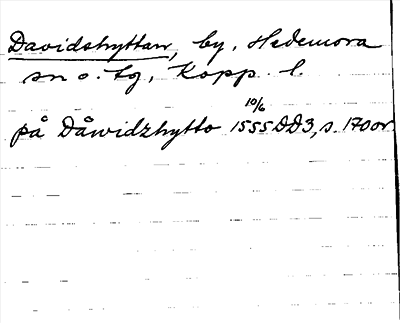 Davidshyttan, by, Hedemora
sn o. tg, Kopp. l.
på Dåwidzhytto 10/6 1555 DD3, s. 170 or.